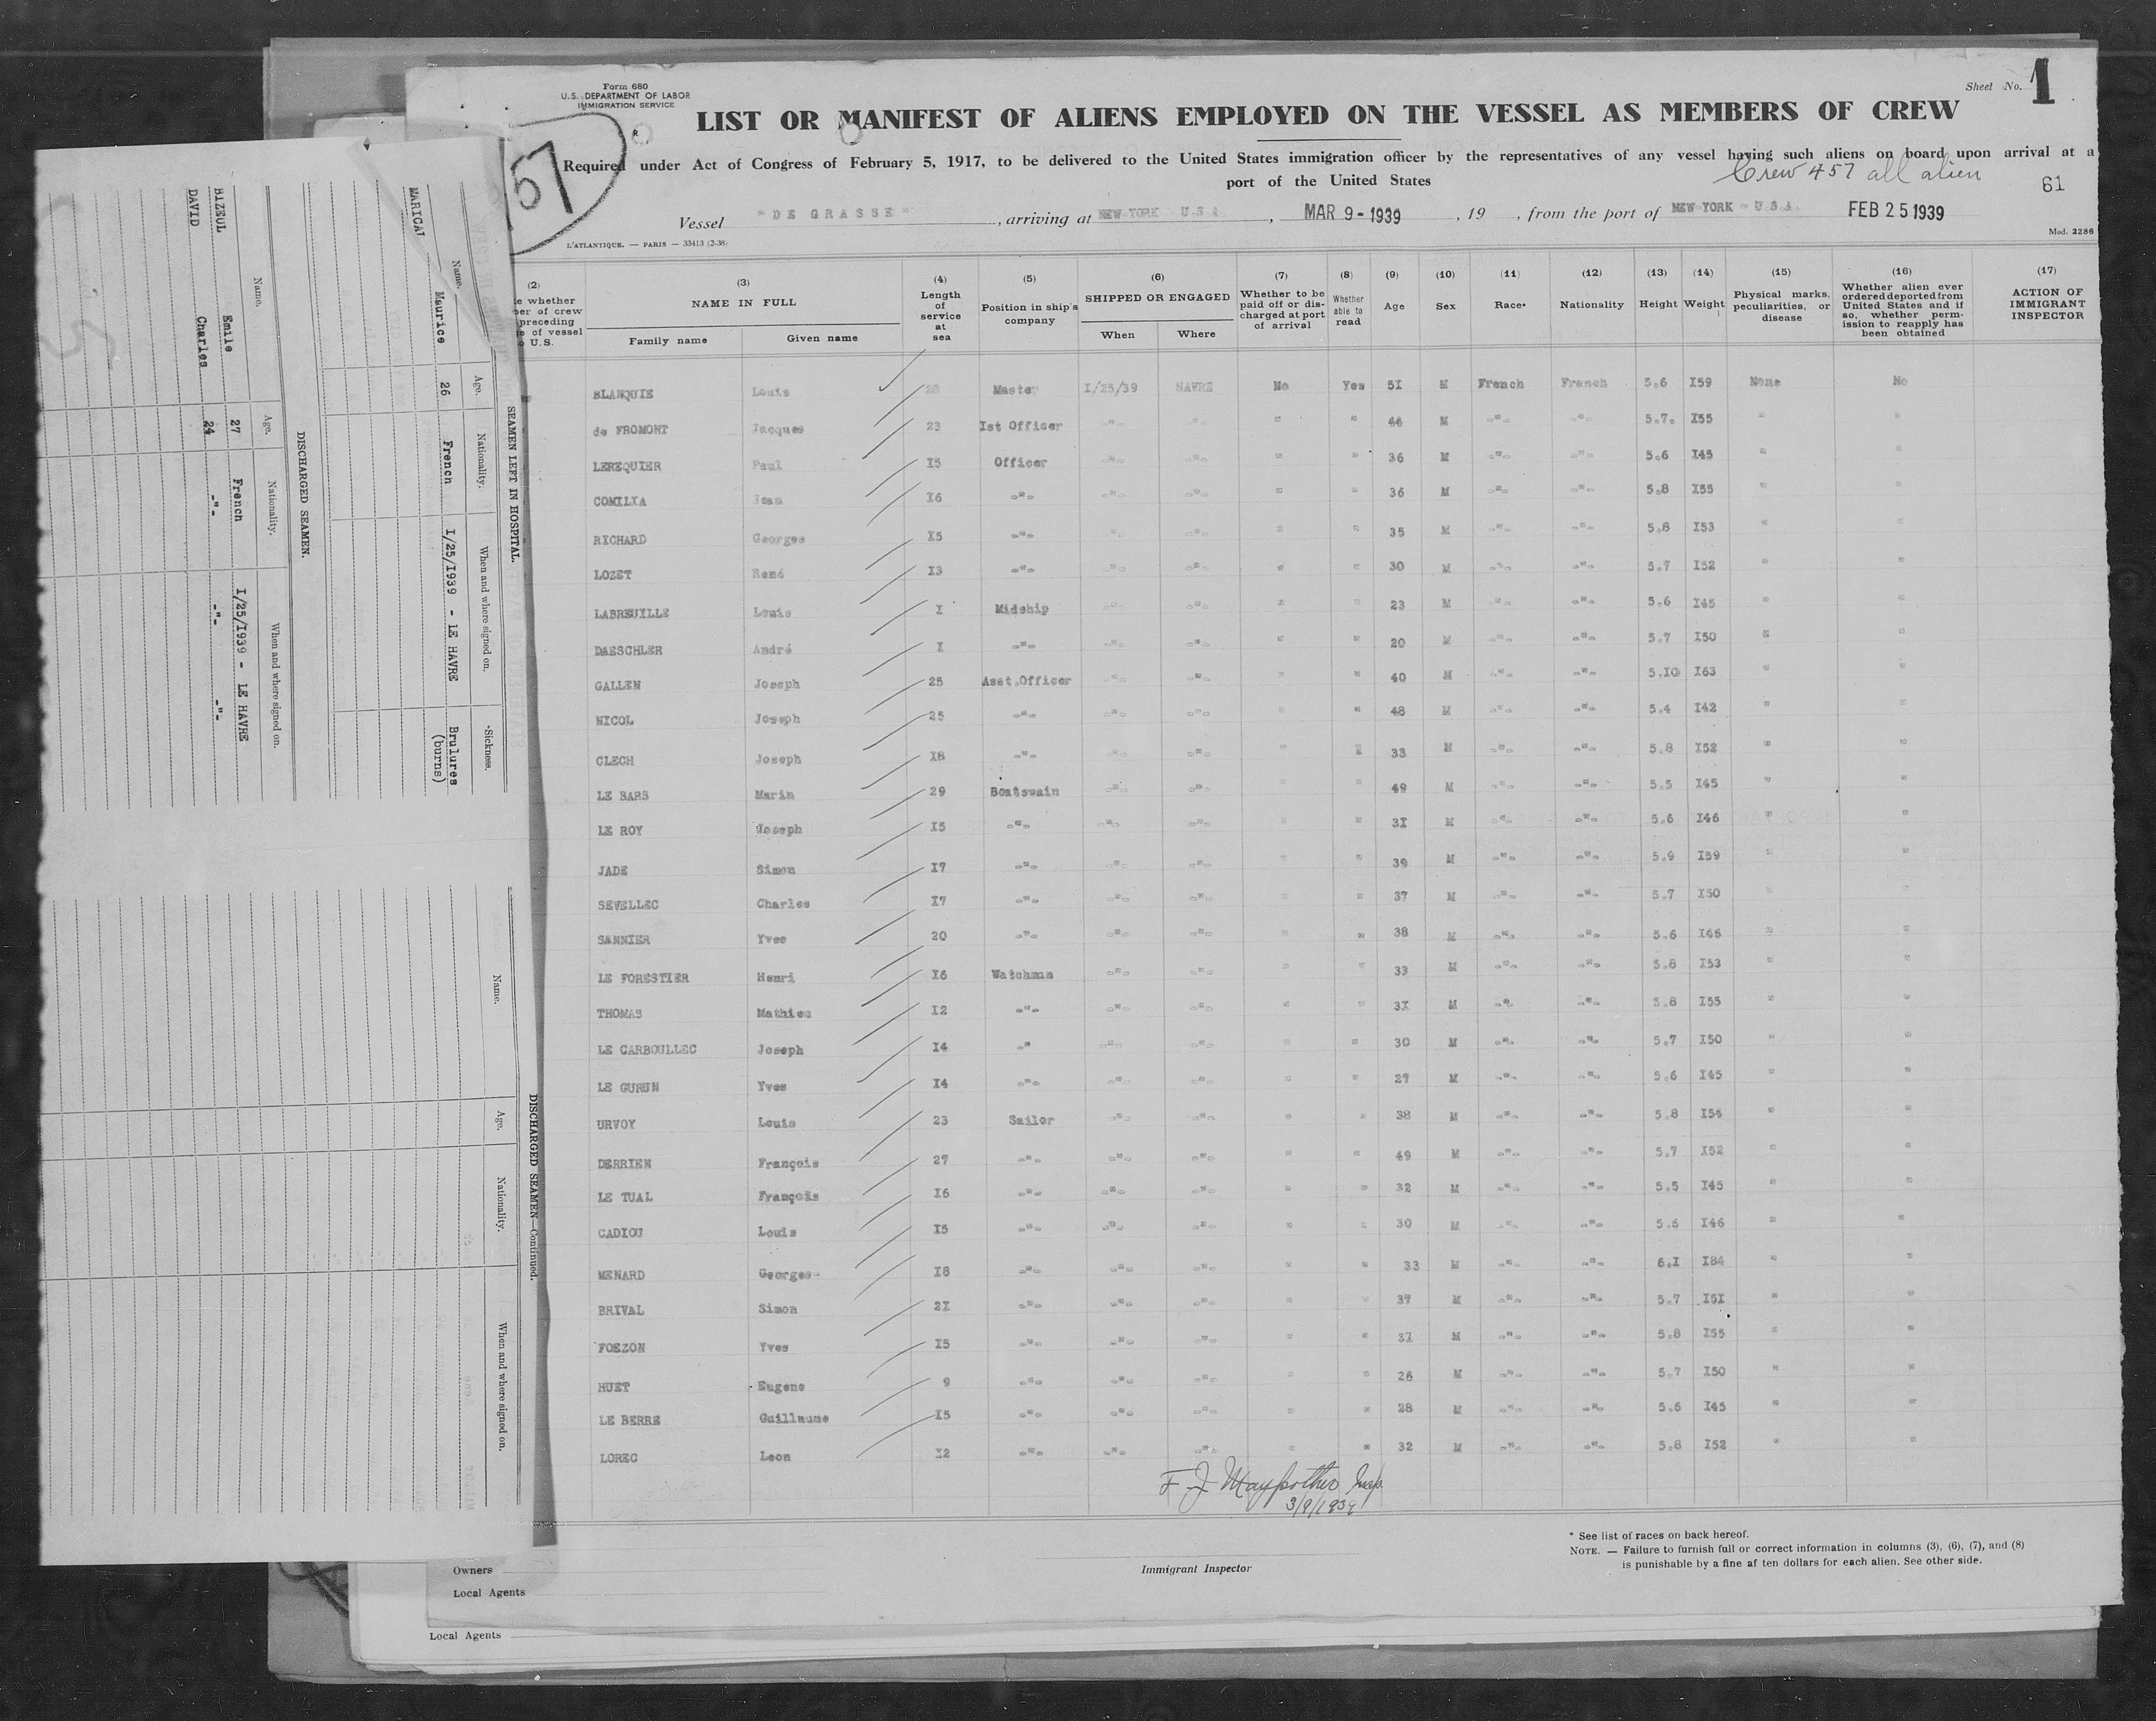 Form 680
U.S. DEPARTMENT OF LABOR
IMMIGRATION SERVICE
Sheet No. 1
LIST OR MANIFEST OF ALIENS EMPLOYED ON THE VESSEL AS MEMBERS OF CREW
Required under Act of Congress of February 5, 1917, to be delivered to the United States immigration officer by the representatives of any vessel having such aliens on board upon arrival at a
port of the United States
Crew 457 all alien
61
57
Vessel "DE GRASSE", arriving at NEW-YORK U.S.A, MAR 9-1939, 19 , from the port of NEW-YORK - U.S.A. FEB 25 1939
L'ATLANTIQUE. — PARIS — 33413 (2-38)
Mod. 2286
(2) (3) (4) (5) (6) (7) (8) (9) (10) (11) (12) (13) (14) (15) (16) (17)
whether
of crew
preceding
of vessel
U.S.
NAME IN FULL
Family name Given name
Length of service at sea
Position in ship's company
SHIPPED OR ENGAGED
When Where
Whether to be paid off or discharged at port of arrival
Whether able to read
Age Sex Race* Nationality Height Weight
Physical marks, peculiarities, or disease
Whether alien ever ordered deported from United States and if so, whether permission to reapply has been obtained
ACTION OF IMMIGRANT INSPECTOR
BLANQUIE Louis 28 Master I/25/39 HAVRE No Yes 5I M French French 5.6 I59 None No
de FROMONT Jacques 23 Ist Officer -"- -"- " " 44 M -"- -"- 5.7. I55 " "
LEREQUIER Paul I5 Officer -"- -"- " " 36 M -"- -"- 5.6 I45 " "
COMILIA Jean I6 -"- -"- -"- " " 36 M -"- -"- 5.8 I55 " "
RICHARD Georges I5 -"- -"- -"- " " 35 M -"- -"- 5.8 I53 " "
LOZET René I3 -"- -"- -"- " " 30 M -"- -"- 5.7 I52 " "
LABREUILLE Louis I Midship -"- -"- " " 23 M -"- -"- 5.6 I45 " "
DAESCHLER André I -"- -"- -"- " " 20 M -"- -"- 5.7 I50 " "
GALLEN Joseph 25 Asst.Officer -"- -"- " " 40 M -"- -"- 5.I0 I63 " "
NICOL Joseph 25 -"- -"- -"- " " 48 M -"- -"- 5.4 I42 " "
CLECH Joseph I8 -"- -"- -"- " " 33 M -"- -"- 5.8 I52 " "
LE BARS Marin 29 Boatswain -"- -"- " " 49 M -"- -"- 5.5 I45 " "
LE ROY Joseph I5 -"- -"- -"- " " 3I M -"- -"- 5.6 I46 " "
JADE Simon I7 -"- -"- -"- " " 39 M -"- -"- 5.9 I59 " "
SEVELLEC Charles I7 -"- -"- -"- " " 37 M -"- -"- 5.7 I50 " "
SANNIER Yves 20 -"- -"- -"- " " 38 M -"- -"- 5.6 I46 " "
LE FORESTIER Henri I6 Watchman -"- -"- " " 33 M -"- -"- 5.8 I53 " "
THOMAS Mathieu I2 -"- -"- -"- " " 3I M -"- -"- 5.8 I55 " "
LE CARBOULLEC Joseph I4 -" -"- -"- " " 30 M -"- -"- 5.7 I50 " "
LE GURUN Yves I4 -"- -"- -"- " " 27 M -"- -"- 5.6 I45 " "
URVOY Louis 23 Sailor -"- -"- " " 38 M -"- -"- 5.8 I54 " "
DERRIEN François 27 -"- -"- -"- " " 49 M -"- -"- 5.7 I52 " "
LE TUAL François I6 -"- -"- -"- " " 32 M -"- -"- 5.5 I45 " "
CADIOU Louis I5 -"- -"- -"- " " 30 M -"- -"- 5.6 I46 " "
MENARD Georges I8 -"- -"- -"- " " 33 M -"- -"- 6.I I84 " "
BRIVAL Simon 2I -"- -"- -"- " " 37 M -"- -"- 5.7 I5I " "
FOEZON Yves I5 -"- -"- -"- " " 3I M -"- -"- 5.8 I55 " "
HUET Eugene 9 -"- -"- -"- " " 26 M -"- -"- 5.7 I50 " "
LE BERRE Guillaume I5 -"- -"- -"- " " 28 M -"- -"- 5.6 I45 " "
LOREC Leon I2 -"- -"- -"- " " 32 M -"- -"- 5.8 I52 " "
F J Maypother Insp.
3/9/1939
Immigrant Inspector
* See list of races on back hereof.
NOTE. — Failure to furnish full or correct information in columns (3), (6), (7), and (8)
is punishable by a fine af ten dollars for each alien. See other side.
Owners
Local Agents
Local Agents
SEAMEN LEFT IN HOSPITAL.
Name. Age. Nationality. When and where signed on. Sickness.
MARICAL Maurice 26 French I/25/I939 - LE HAVRE Brulures
(burns)
DISCHARGED SEAMEN.
Name. Age. Nationality. When and where signed on.
BIZEUL Emile 27 French I/25/I939 - LE HAVRE
DAVID Charles 24 -"- -"- -"-
DISCHARGED SEAMEN—Continued.
Name. Age. Nationality. When and where signed on.